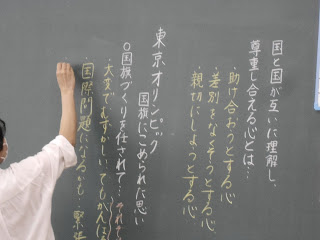 国と国が互いに理解し、
尊重し合える心とは…
・助け合おうとする心
・差別をなくそうとする心
・親切にしようとする心
東京オリンピック
国旗にこめられた思い
○国旗づくりを任されて…
・大変でむずかしい。でもがんばる
・国際問題になるかも…緊